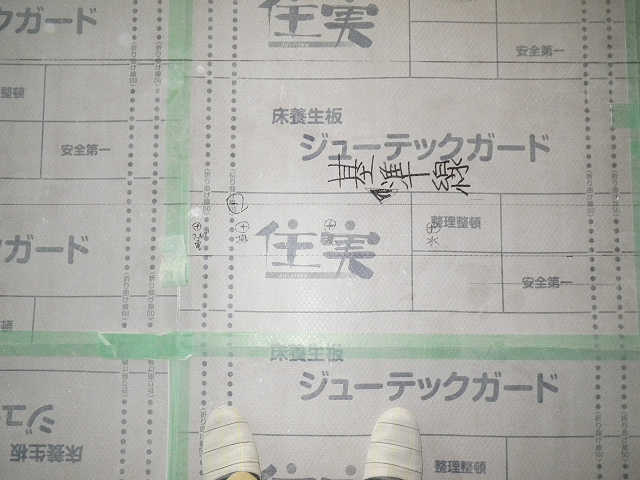 ックガード
住実
安全第一
整頓
床養生板
安全第一
ジューテックガード
基準線
整理整頓
住実
ガード
安全第一
床養生板
ジューテックガード
ジュ
床養生板
整理整頓